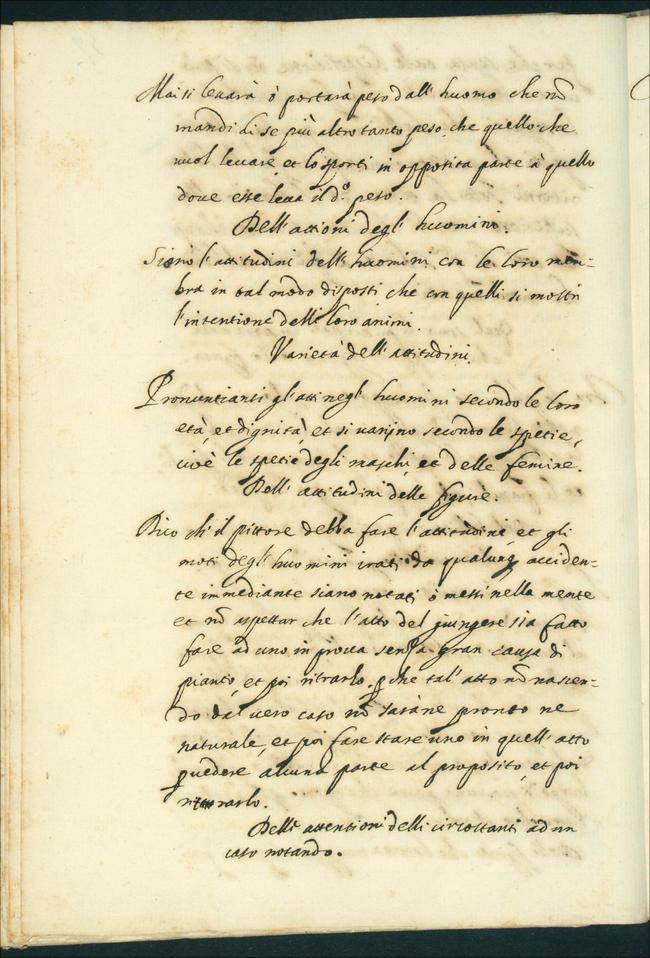 Mai si levarà ò portarà peso dall' huomo che nõ
mandi di se più altro tanto peso, che quello che
vuol levare, et lo sporti in opposita parte à quello
dove esse leva il d.º peso.
Dell' attioni degl' huomini.
Siano l' attitudini dell' huomini con le loro mem-
bra in tal modo disposti, che con quelli si mostri
l'intentione delli loro animi.
Varietà dell' attitudini.
Pronuntiansi gl' atti negl' huomini secondo le loro
età, et dignità, et si varijno secondo le spetie,
cioè le spetie degli maschi, et delle femine.
Dell' attitudini delle figure.
Dico ch' il pittore debba fare l' attitudini, et gli
moti degl' huomini irati da qualunq acciden-
te immediante siano notati ò messi nella mente
et nõ aspettar che l' atto del piungere sia fatto
fare ad uno in prova senza gran causa di
pianto, et poi ritrarlo. p che tal' atto nõ nascen-
do dal vero caso nõ sarà ne pronto ne
naturale, et poi fare stare uno in quell' atto
p vedere alcuna parte al proposito, et poi
ritrarlo.
Delle attentioni delli circostanti ad un
caso notando.